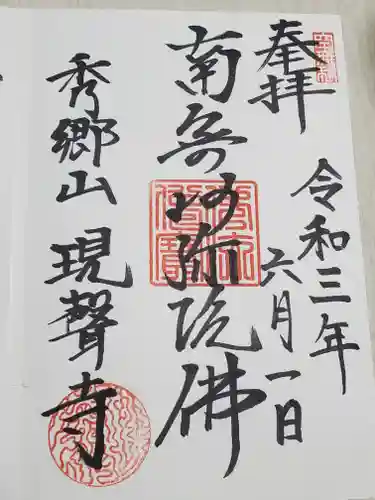 奉拝
令和三年
六月一日
南無阿弥陀佛
秀郷山 現聲寺